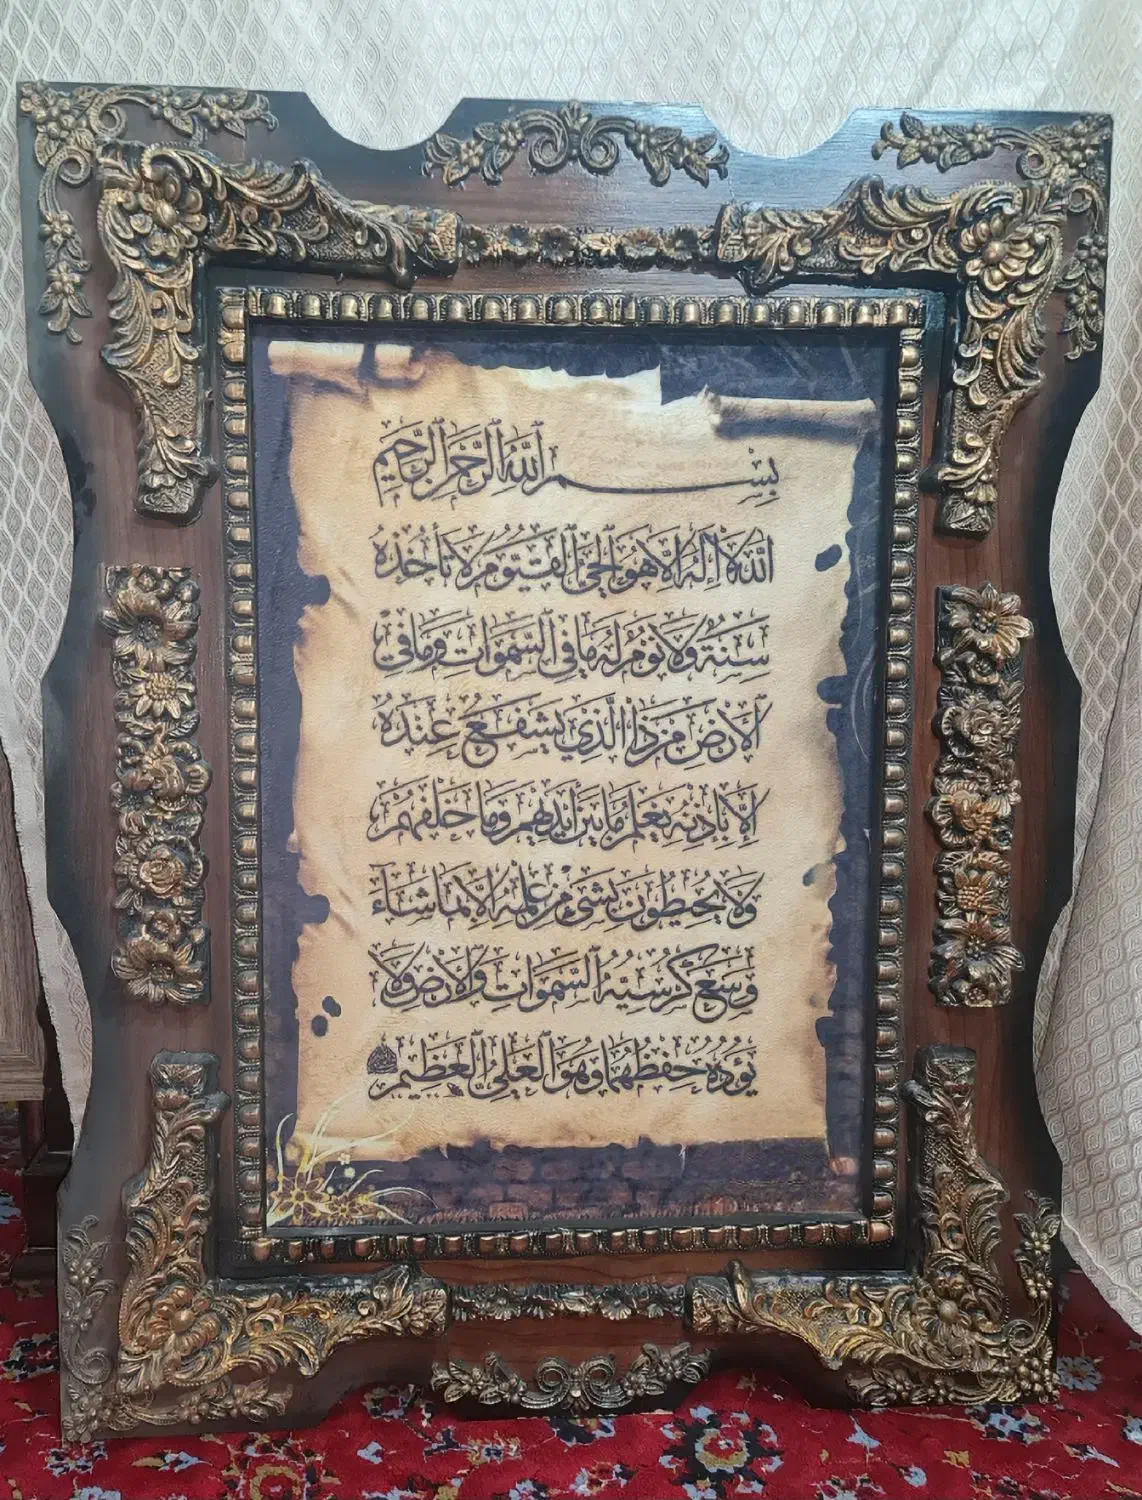 بِسْمِ ٱللَّهِ ٱلرَّحْمَنِ ٱلرَّحِيمِ
ٱللَّهُ لَا إِلَهَ إِلَّا هُوَ ٱلْحَيُّ ٱلْقَيُّومُ لَا تَأْخُذُهُ
سِنَةٌ وَلَا نَوْمٌ لَهُ مَا فِي ٱلسَّمَوَاتِ وَمَا فِي
ٱلْأَرْضِ مَنْ ذَا الَّذِي يَشْفَعُ عِنْدَهُ
إِلَّا بِإِذْنِهِ يَعْلَمُ مَا بَيْنَ أَيْدِيهِمْ وَمَا خَلْفَهُمْ
وَلَا يُحِيطُونَ بِشَيْءٍ مِنْ عِلْمِهِ إِلَّا بِمَا شَاءَ
وَسِعَ كُرْسِيُّهُ ٱلسَّمَوَاتِ وَٱلْأَرْضَ وَلَا
يَؤُدُهُ حِفْظُهُمَا وَهُوَ ٱلْعَلِيُّ ٱلْعَظِيمُ